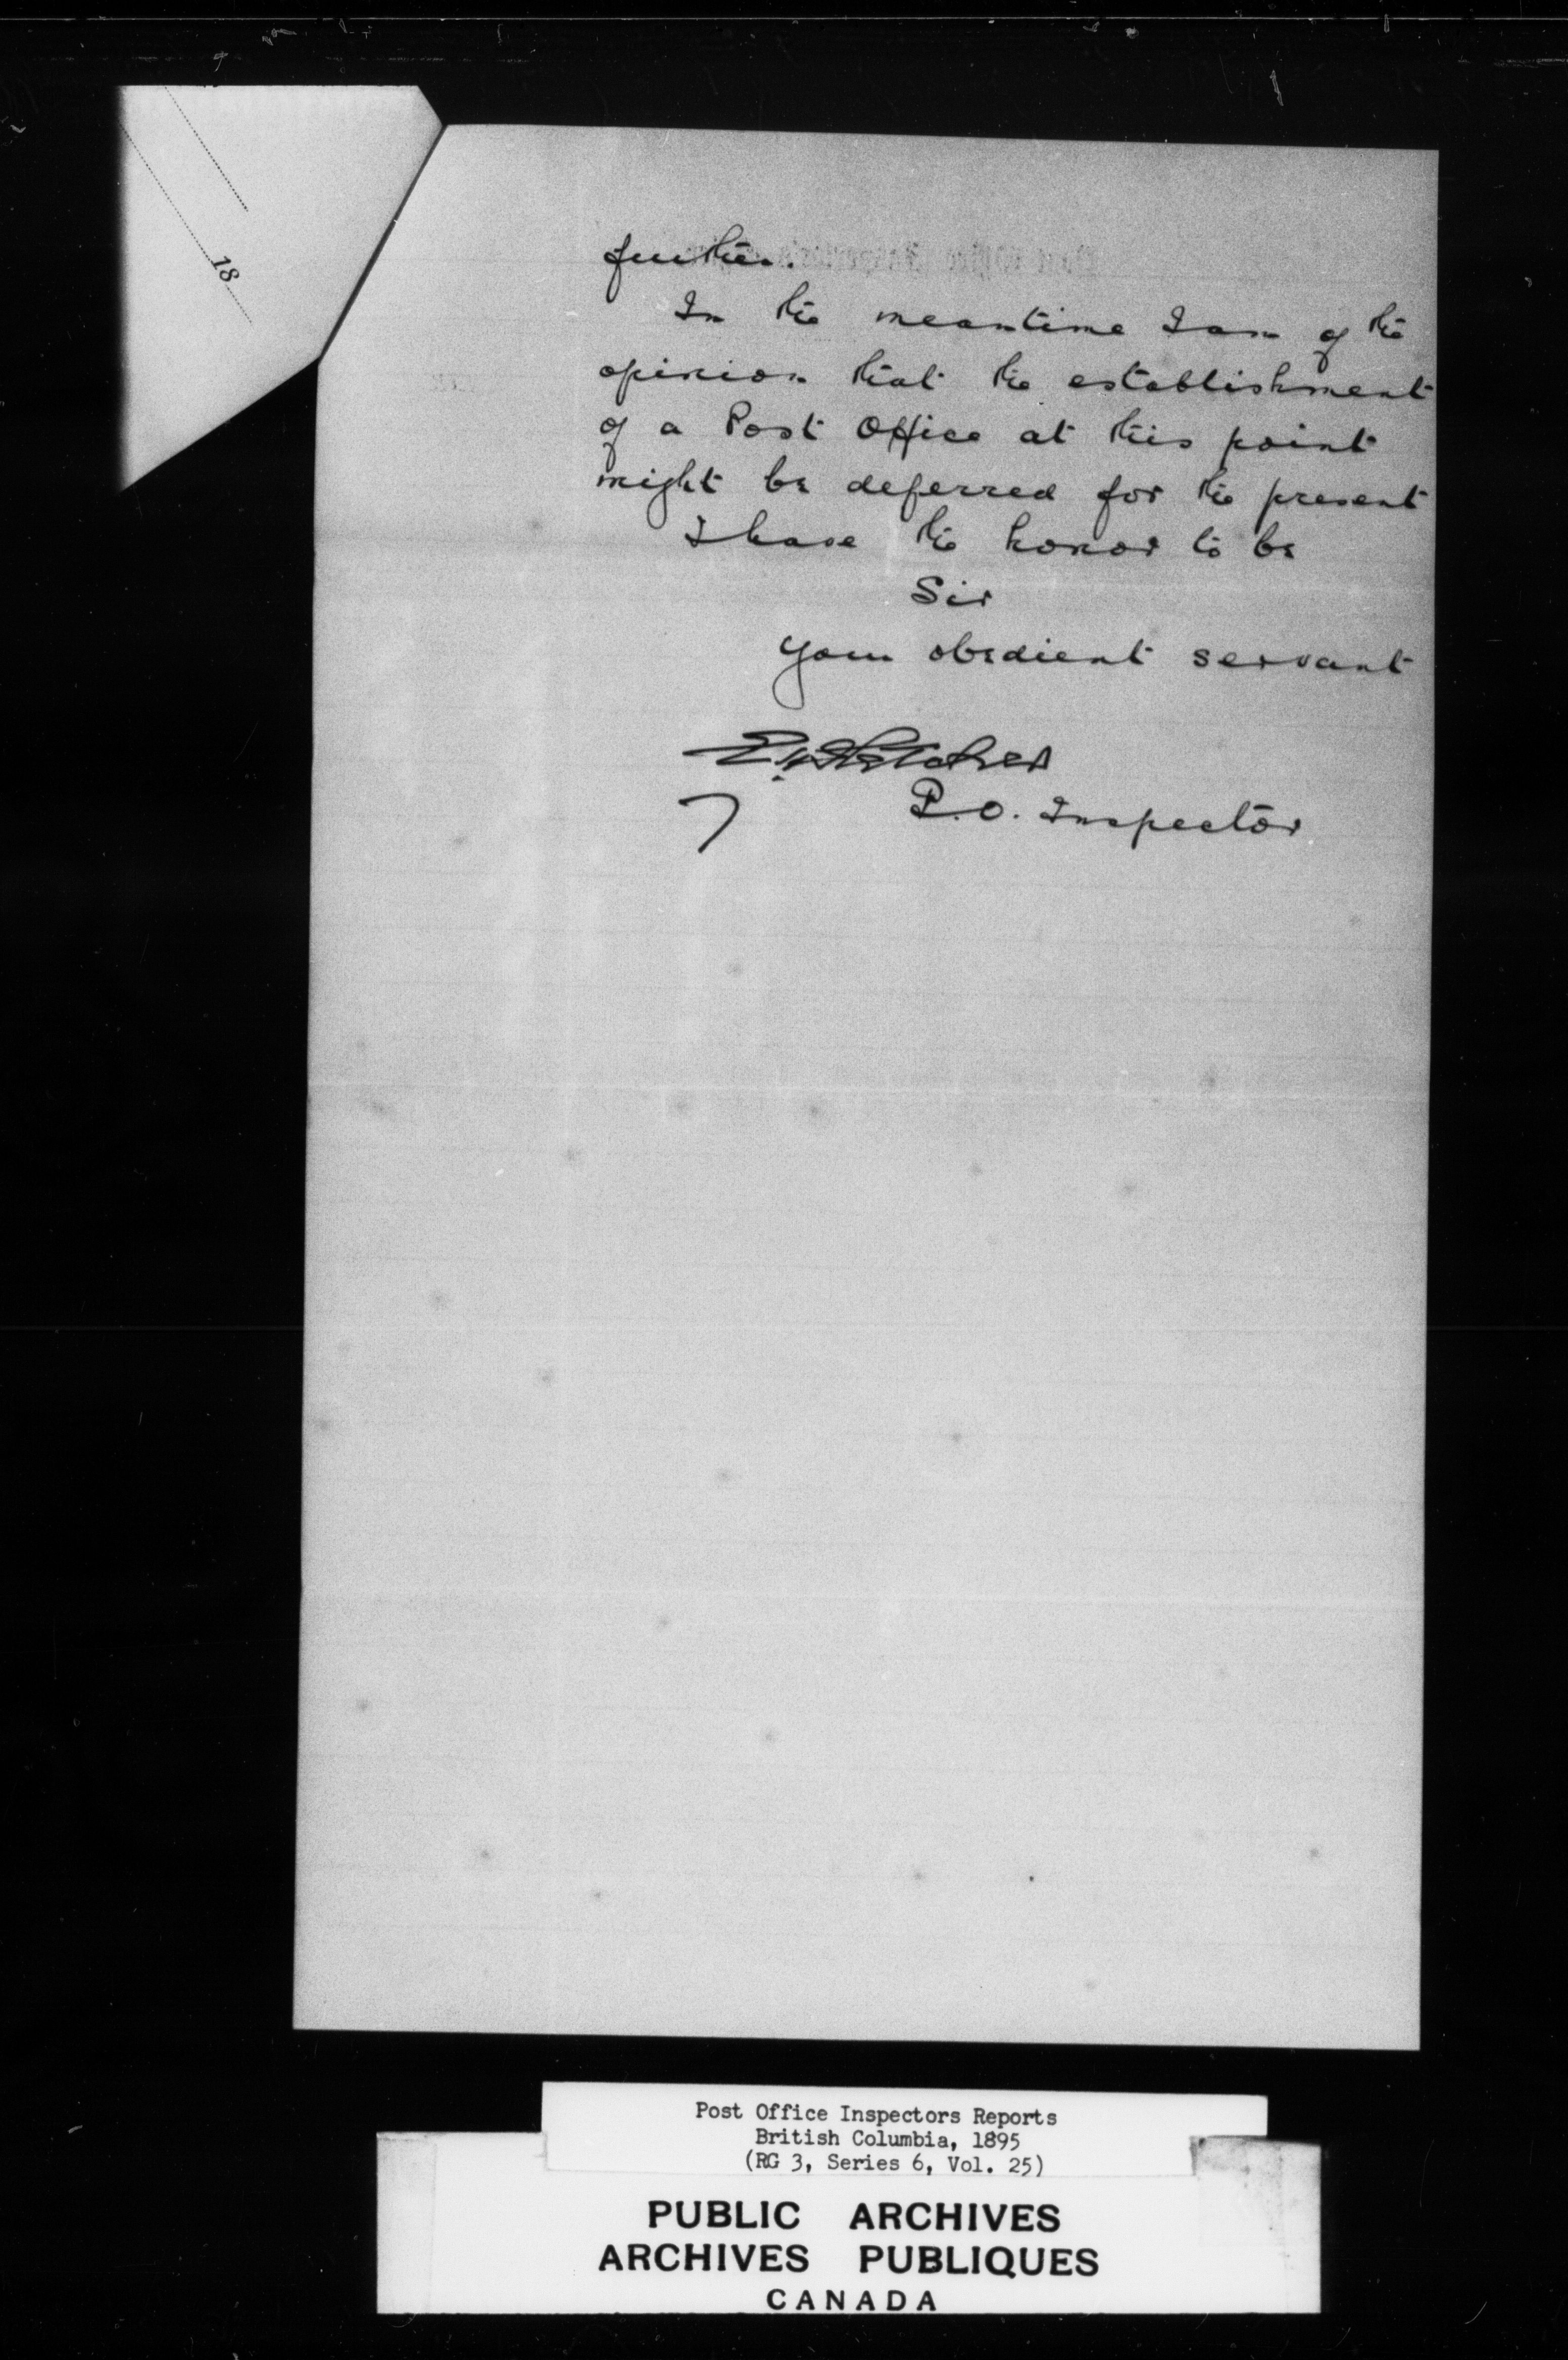 18
further.
In the meantime I am of the
opinion that the establishment
of a Post Office at this point
might be deferred for the present
I have the honor to be
Sir
your obedient servant
E. H. Fletcher
P.O. Inspector
Post Office Inspectors Reports
British Columbia, 1895
(RG 3, Series 6, Vol. 25)
PUBLIC ARCHIVES
ARCHIVES PUBLIQUES
CANADA